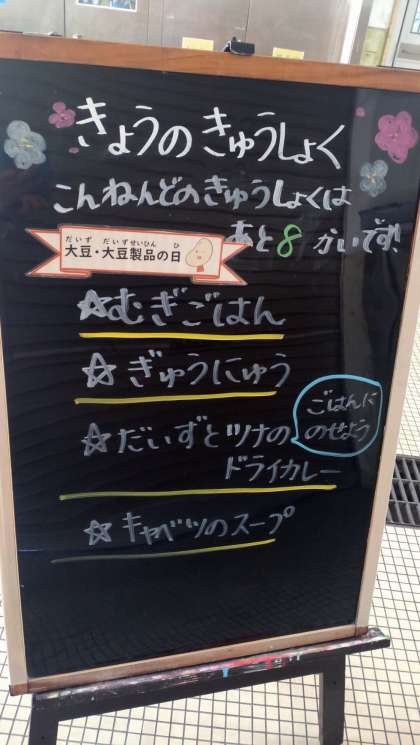 きょうのきゅうしょく
こんねんどのきゅうしょくは
あと8かいです!
だいず だいずせいひん ひ
大豆・大豆製品の日
☆むぎごはん
☆ぎゅうにゅう
☆だいずとツナの
ドライカレー
ごはんに
のせよう
☆キャベツのスープ